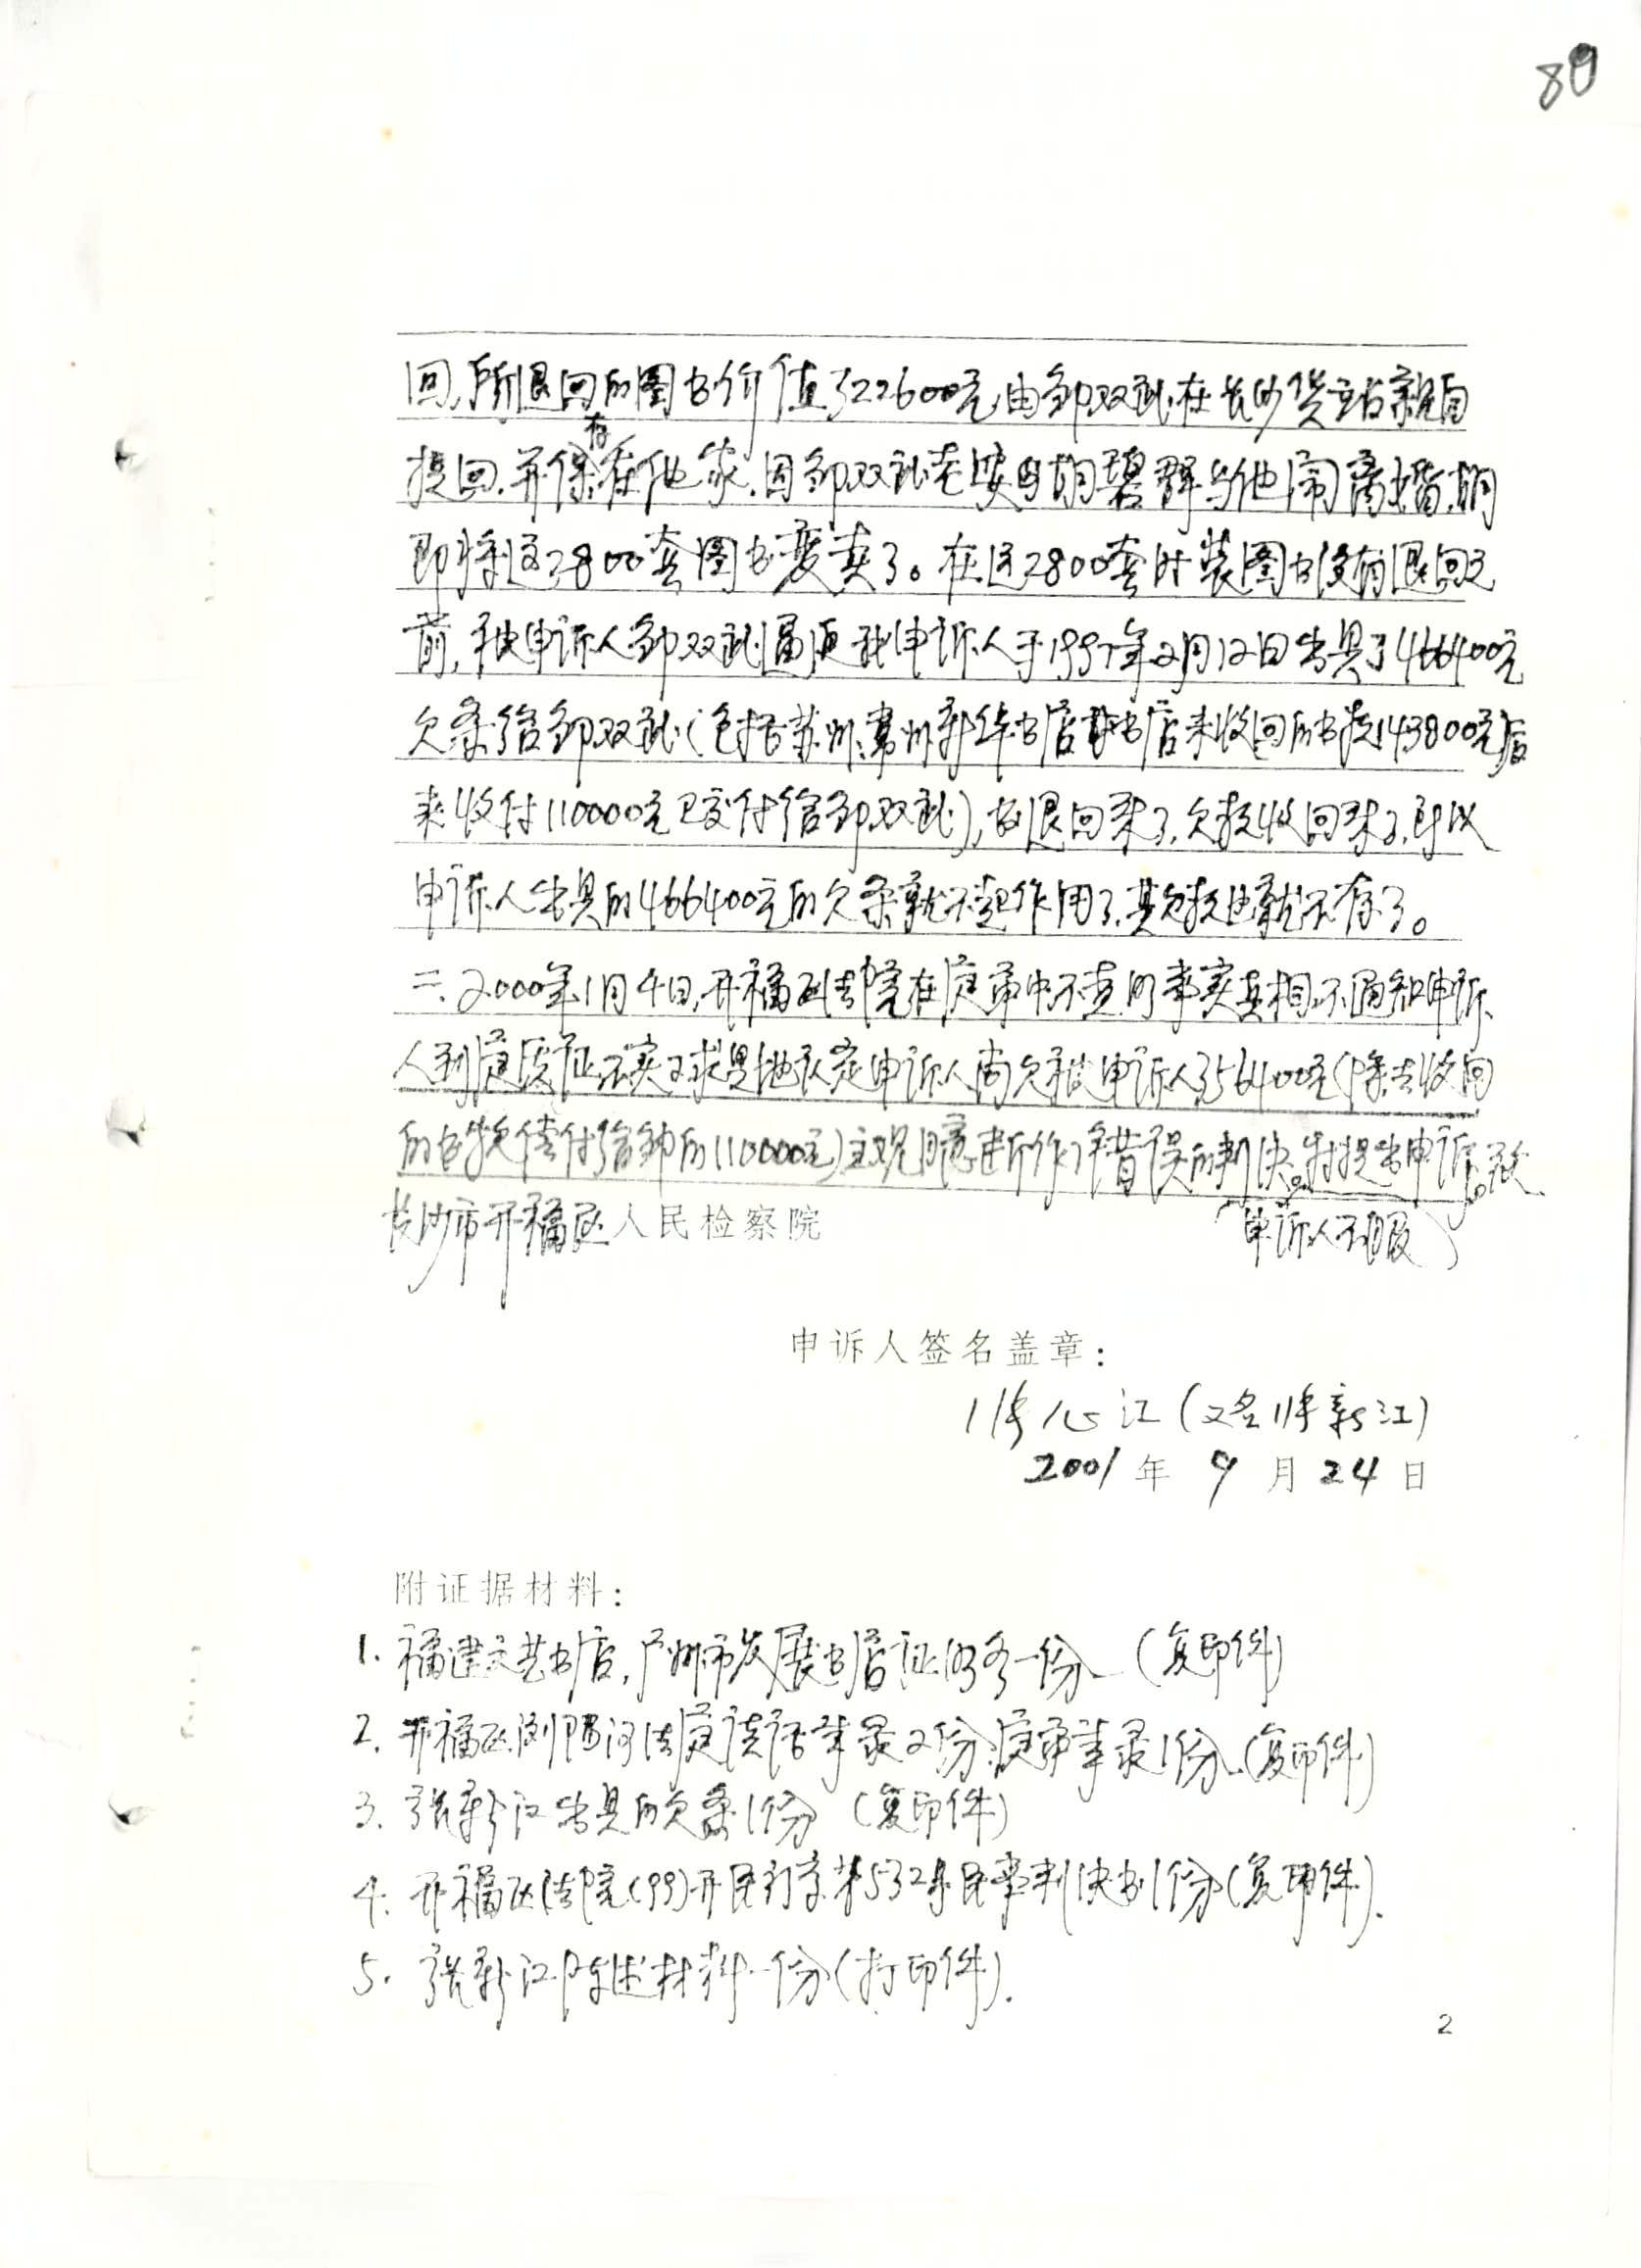 80
回,所退回的图书价值322600元,由邹双武在长沙货站亲自
提回.并保存在他家.因邹双武老婆胡碧群与他闹离婚.胡
即将这2800套图书变卖了。在这2800套时装图书没有退回之
前,被申诉人邹双武逼迫我申诉人于1997年2月12日出具了466400元
欠条给邹双武(包括苏州、常州新华书店书店未收回的书款143800元后
来收付110000元已交付给邹双武),书退回来了,欠款收回来了,所以
申诉人出具的466400元的欠条就不起作用了.其欠款也就不存了。
二.2000年1月4日,开福区法院在庭审中不查明事实真相.不通知申诉
人到庭质证.不实事求是地认定申诉人尚欠被申诉人356400元(除去收回
的书款偿付给邹的110000元)主观臆断作了错误的判决。特提出申诉。致
长沙市开福区人民检察院
申诉人不服
申诉人签名盖章:
张心江(又名张新江)
2001年 9月24日
附证据材料:
1. 福建文艺书店,广州市发展书店证明各一份(复印件)
2. 开福区浏阳河法庭谈话笔录2份.庭审笔录1份.(复印件)
3. 张新江出具的欠条1份 (复印件)
4. 开福区法院(99)开民初字第532号民事判决书1份(复印件).
5. 张新江陈述材料一份(打印件).
2